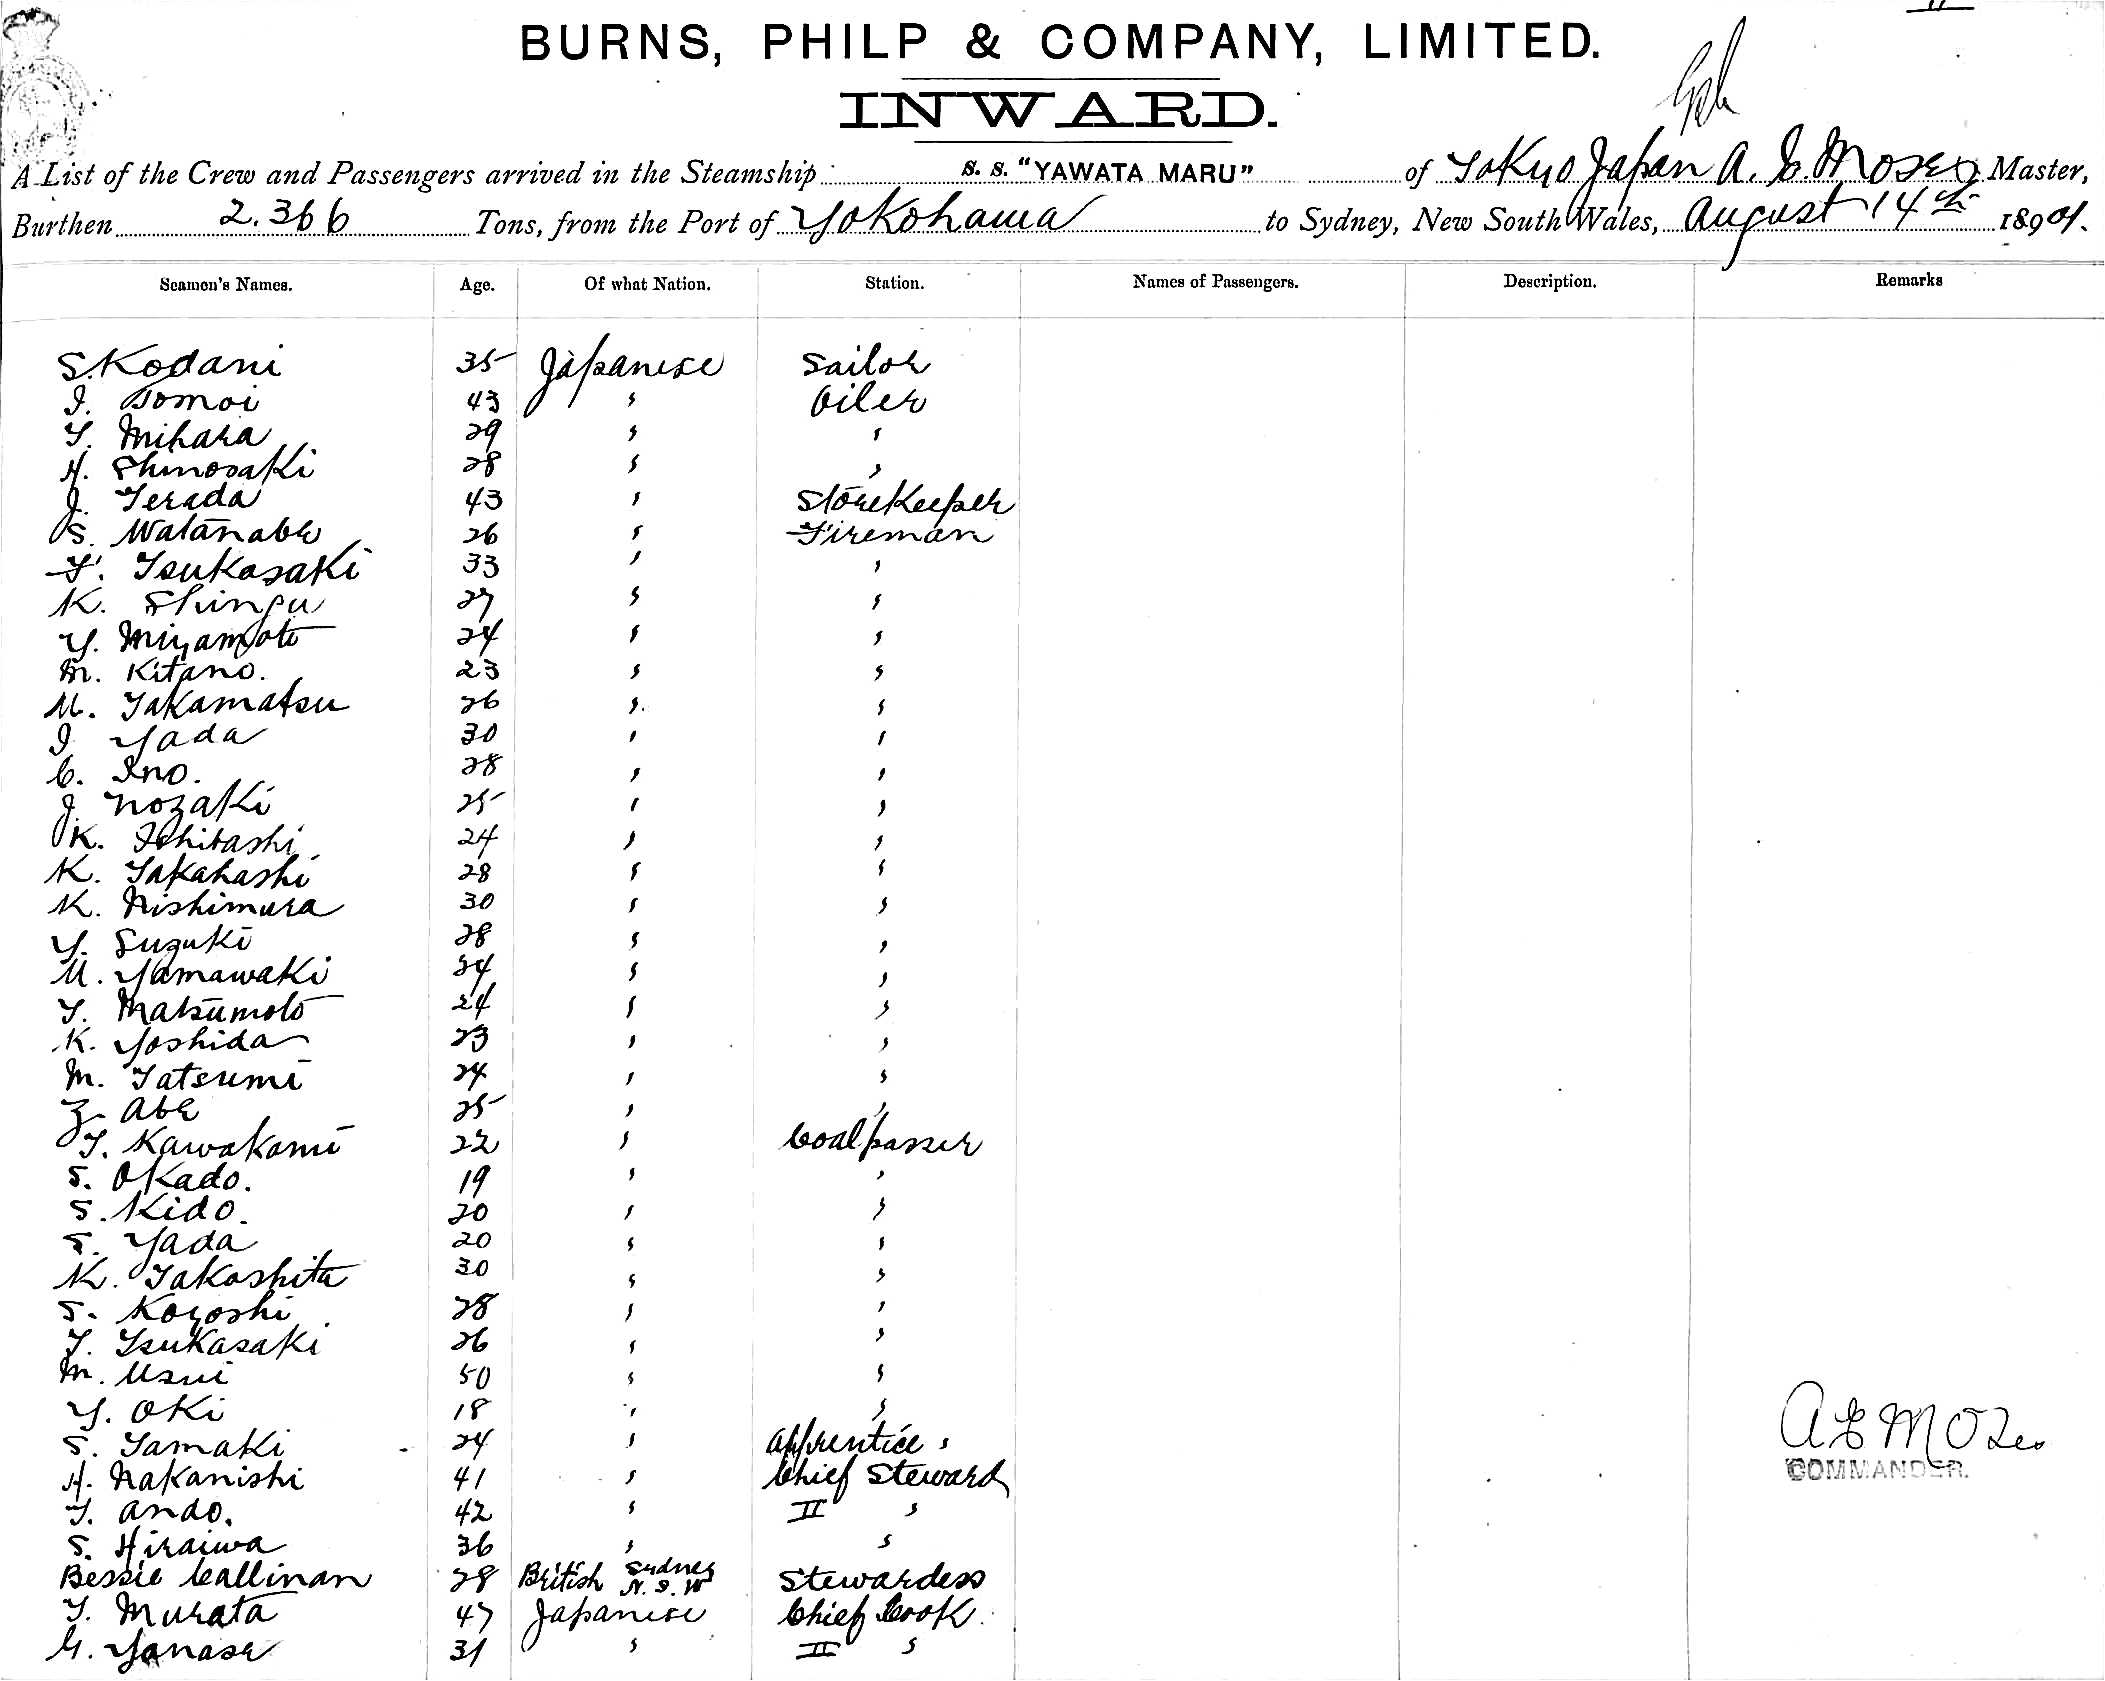 BURNS, PHILP & COMPANY, LIMITED.
INWARD.
A List of the Crew and Passengers arrived in the Steamship S. S. "YAWATA MARU" of Tokyo Japan A. E. Moses Master,
Burthen 2.366 Tons, from the Port of Yokohama to Sydney, New South Wales, August 14th 1890 01.
Seamen's Names. Age. Of what Nation. Station. Names of Passengers. Description. Remarks
S. Kodani 35 Japanese Sailor
I. Tomoi 43 " Oiler
T. Mihara 29 " "
H. Shinosaki 28 " "
J. Terada 43 " Storekeeper
S. Watanabe 26 " Fireman
F. Tsukasaki 33 " "
K. Shingu 27 " "
Y. Miyamoto 24 " "
M. Kitano. 23 " "
U. Takamatsu 26 " "
I. Yada 30 " "
C. Ino. 28 " "
J. Nozaki 25 " "
K. Ichibashi 24 " "
K. Takahashi 28 " "
K. Nishimura 30 " "
Y. Suzuki 28 " "
U. Yamawaki 24 " "
T. Matsumoto 24 " "
K. Yoshida 23 " "
M. Tatsumi 24 " "
Z. Abe 25 " "
T. Kawakami 22 " Coalpasser
S. Okado. 19 " "
S. Kido. 20 " "
S. Yada 20 " "
K. Takoshita 30 " "
S. Koyoshi 28 " "
T. Tsukasaki 26 " "
M. Usui 50 " "
Y. Oki 18 " "
S. Tamaki 24 " Apprentice "
H. Nakanishi 41 " Chief Steward
T. Ando. 42 " II "
S. Hiraiwa 36 " "
Bessie Callinan 28 British Sydney N.S.W Stewardess
T. Murata 47 Japanese Chief Cook
G. Yanase 31 " II "
A E Moses
COMMANDER.